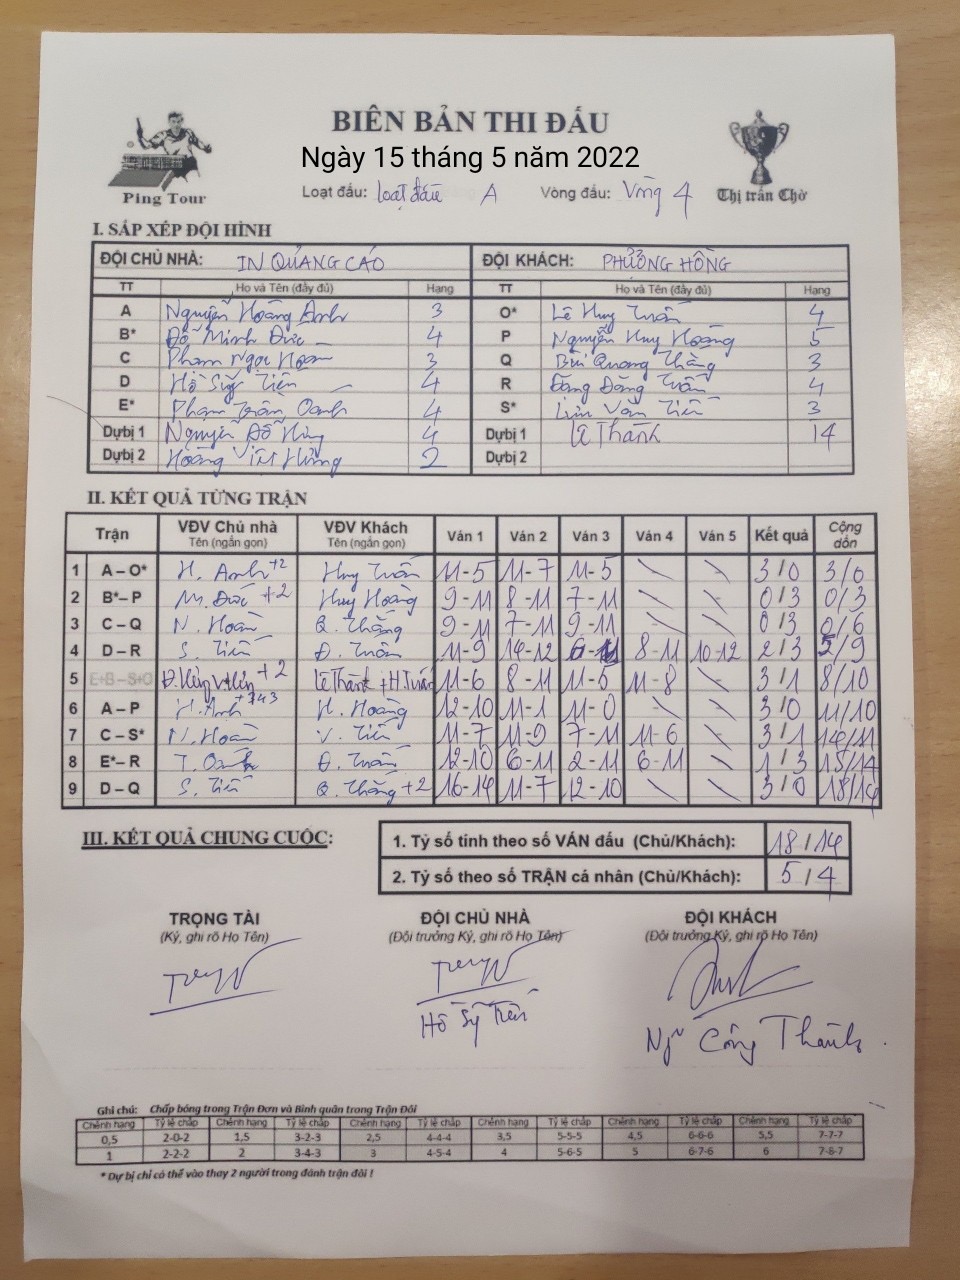 BIÊN BẢN THI ĐẤU
Ngày 15 tháng 5 năm 2022
Ping Tour
Loạt đấu: Loạt đấu A Vòng đấu: Vòng 4
Thị trấn Chờ
I. SẮP XẾP ĐỘI HÌNH
ĐỘI CHỦ NHÀ: IN QUẢNG CÁO ĐỘI KHÁCH: PHƯỢNG HỒNG
TT Họ và Tên (đầy đủ) Hạng TT Họ và Tên (đầy đủ) Hạng
A Nguyễn Hoàng Anh 3 O* Lê Huy Tuấn 4
B* Đỗ Minh Đức 4 P Nguyễn Huy Hoàng 5
C Phạm Ngọc Hoàn 3 Q Bùi Quang Thắng 3
D Hồ Sỹ Tiến 4 R Đặng Đăng Tuấn 4
E* Phạm Trần Oanh 4 S* Văn Tiến 3
Dự bị 1 Nguyễn Đỗ Hùng 4 Dự bị 1 Lê Thành 14
Dự bị 2 Hoàng Hưng 2 Dự bị 2
II. KẾT QUẢ TỪNG TRẬN
Trận VĐV Chủ nhà VĐV Khách Ván 1 Ván 2 Ván 3 Ván 4 Ván 5 Kết quả Cộng dồn
Tên (ngắn gọn) Tên (ngắn gọn)
1 A – O* H. Anh +2 Huy Tuấn 11-5 11-7 11-5 3/0 3/0
2 B* – P M. Đức +2 Huy Hoàng 9-11 8-11 7-11 0/3 0/3
3 C – Q N. Hoàn Q. Thắng 9-11 7-11 9-11 0/3 0/6
4 D – R S. Tiến Đ. Tuấn 11-9 14-12 6-11 8-11 10-12 2/3 5/9
5 E+B – S+O +2 Lê Thành + H. Tuấn 11-6 8-11 11-5 11-8 3/1 8/10
6 A – P H. Anh H. Hoàng 12-10 11-1 11-0 3/0 11/10
7 C – S* N. Hoàn V. Tiến 11-7 11-9 7-11 11-6 3/1 14/11
8 E* – R T. Oanh Đ. Tuấn 12-10 6-11 2-11 6-11 1/3 15/14
9 D – Q S. Tiến Q. Thắng +2 16-14 11-7 12-10 3/0 18/14
III. KẾT QUẢ CHUNG CUỘC:
1. Tỷ số tính theo số VÁN đấu (Chủ/Khách): 18/14
2. Tỷ số theo số TRẬN cá nhân (Chủ/Khách): 5/4
TRỌNG TÀI ĐỘI CHỦ NHÀ ĐỘI KHÁCH
(Ký, ghi rõ Họ Tên) (Đội trưởng Ký, ghi rõ Họ Tên) (Đội trưởng Ký, ghi rõ Họ Tên)
Hồ Sỹ Tiến
Ng Công Thành
Ghi chú: Chấp bóng trong Trận Đơn và Bình quân trong Trận Đôi
Chênh hạng Tỷ lệ chấp Chênh hạng Tỷ lệ chấp Chênh hạng Tỷ lệ chấp Chênh hạng Tỷ lệ chấp Chênh hạng Tỷ lệ chấp Chênh hạng Tỷ lệ chấp
0,5 2-0-2 1,5 3-2-3 2,5 4-4-4 3,5 5-5-5 4,5 6-6-6 5,5 7-7-7
1 2-2-2 2 3-4-3 3 4-5-4 4 5-6-5 5 6-7-6 6 7-8-7
* Dự bị chỉ có thể vào thay 2 người trong đánh trận đôi !